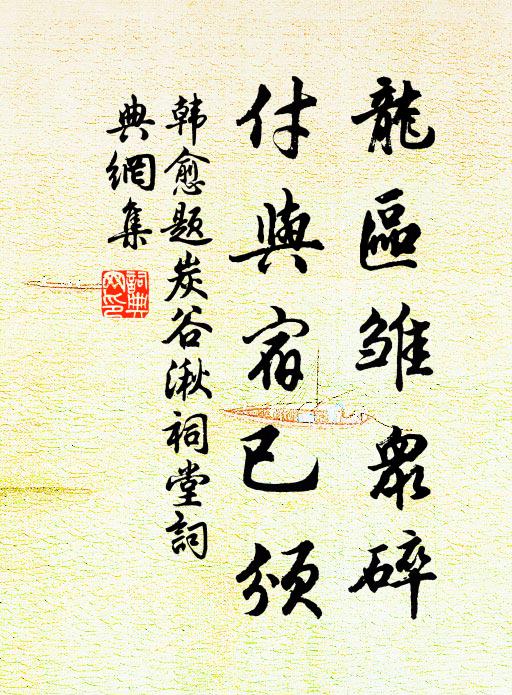 龍區雏衆碎
付與宿已頒
韩愈题炭谷湫祠堂詞
典網集
詞典网印